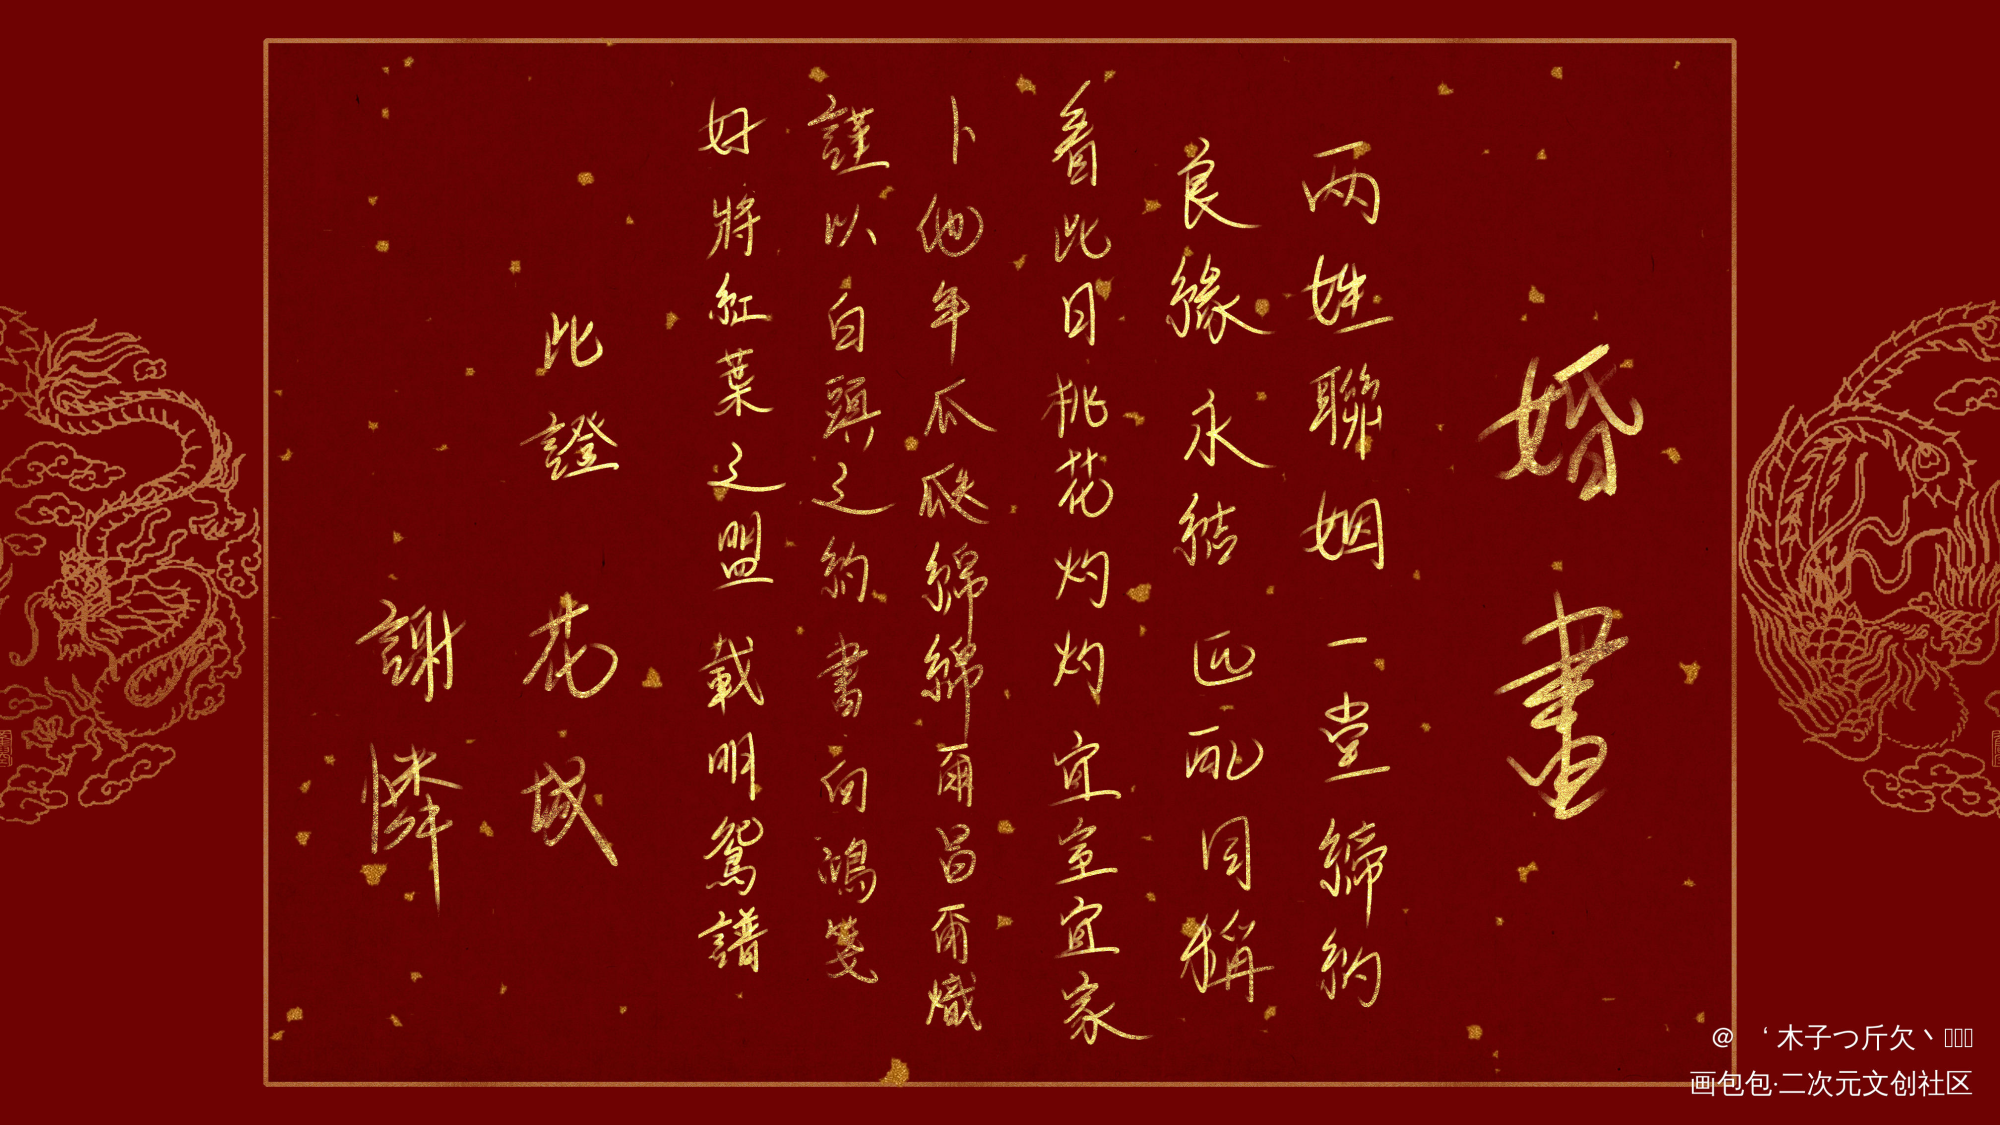 婚書
两姓聯姻一堂締約
良緣永結匹配同稱
看此日桃花灼灼宜室宜家
卜他年瓜瓞綿綿爾昌爾熾
謹以白頭之約書向鴻箋
好將紅葉之盟載明鴛譜
此證
花城
謝憐
@ ‘木子つ斤欠丶
画包包·二次元文创社区